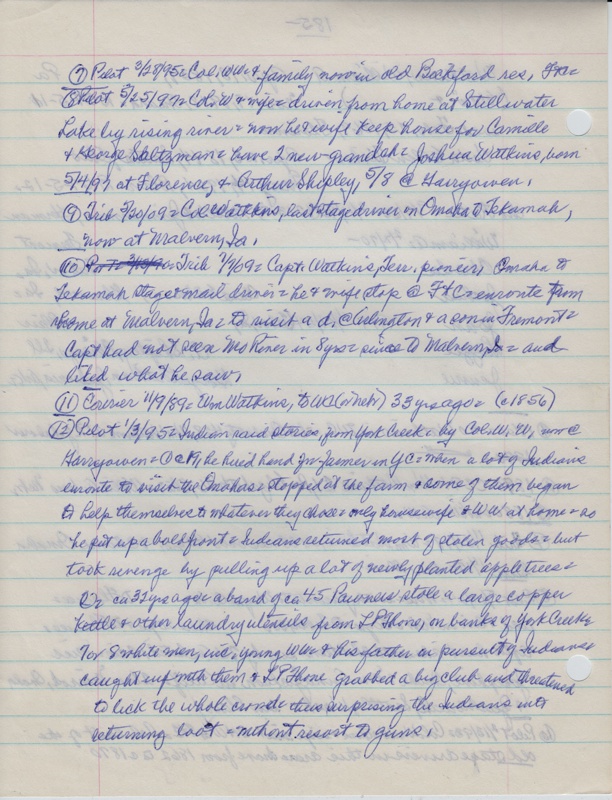 ⑦ Pilot 3/28/95 = Col. WW & family now in old Beckford res, Ft C =
⑧ Pilot 5/25/97 = Col. W & wife = driven from home at Stillwater
Lake by rising river = now he & wife keep house for Camille
& George Saltzman = have 2 new grandch = Joshua Watkins, born
5/4/97 at Florence, & Arthur Shipley, 5/8 @ Harryowen.
⑨ Trib 5/20/09 = Col. Watkins, last stage driver on Omaha to Tekamah,
now at Malvern, Ia.
⑩ Trib 7/9/09 = Capt. Watkins, Terr. pioneer, Omaha to
Tekamah stage & mail driver = he & wife stop @ Ft C = enroute from
home at Malvern, Ia = to visit a d. @ Arlington & a son in Fremont =
Capt had not seen Mo River in 8 yrs = since to Malvern, Ia = and
liked what he saw.
⑪ Courier 11/9/89 = Wm Watkins, to WC (or Neb) 33 yrs ago = (c 1856)
⑫ Pilot 1/3/95 = Indian raid stories, from York Creek = by Col. W. W., now @
Harryowen = @ 19, he hired hand for farmer in YC = when a lot of Indians
enroute to visit the Omahas = stopped at the farm & some of them began
to help themselves to whatever they chose = only housewife & WW at home = so
he put up a bold front = Indians returned most of stolen goods = but
took revenge by pulling up a lot of newly planted apple trees =
ca 32 yrs ago = a band of ca 45 Pawnees stole a large copper
kettle & other laundry utensils from LP Thone, on banks of York Creek =
7 or 8 white men, inc. young WW & his father in pursuit of Indians =
caught up with them & LP Thone grabbed a big club and threatened
to lick the whole crowd = thus surprising the Indians into
returning loot = without resort to guns.